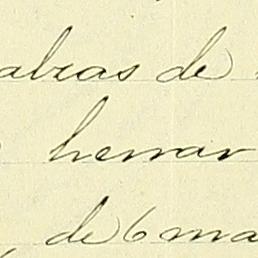 abras de
herrar
de 6 ma